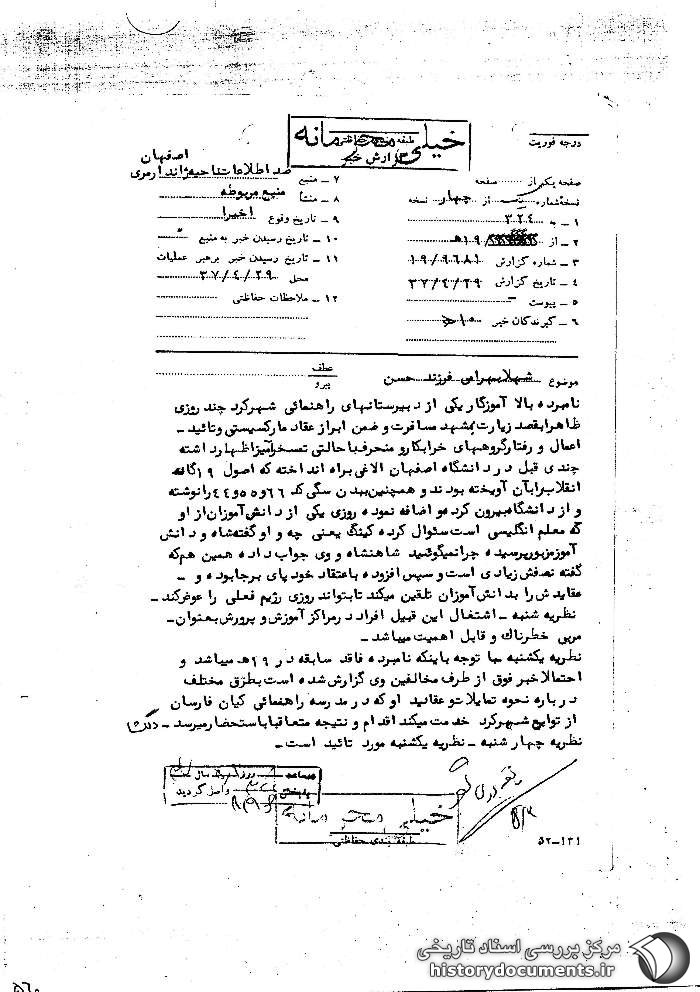 خیلی محرمانه
طبقه بندی حفاظتی
گزارش خبر
درجه فوریت
صفحه یکم از صفحه
نسخه شماره یک از چهار نسخه
۱ – به ۳۲۴
۲ – از ۱۹/ ه‍
۳ – شماره گزارش ۱۹/۹۶۸۱
۴ – تاریخ گزارش ۳۷/۴/۲۹
۵ – پیوست –
۶ – گیرندگان خبر
اصفهان
ضد اطلاعات ناحیه ژاندارمری
۷ – منبع
۸ – منشأ منبع مربوطه
۹ – تاریخ وقوع اخیرا
۱۰ – تاریخ رسیدن خبر به منبع
۱۱ – تاریخ رسیدن خبر برهبر عملیات
محل ۳۷/۴/۲۹
۱۲ – ملاحظات حفاظتی
موضوع شهلا بهرامی فرزند حسن
عطف
پیرو
نامبرده بالا آموزگار یکی از دبیرستانهای راهنمائی شهرکرد چند روزی
ظاهرا بقصد زیارت بمشهد مسافرت و ضمن ابراز عقاد مارکسیستی وتائید –
اعمال و رفتار گروههای خرابکارو منحرف با حالتی تمسخرآمیز اظهارداشته
چندی قبل در دانشگاه اصفهان الاغی براه انداخته که اصول ۱۹گانه
انقلاب را بآن آویخته بودند و همچنین ببدن سگی کد ۶۶و۵۵و۴۴ رانوشته
و از دانشگاه بیرون کرده و اضافه نموده روزی یکی از دانش آموزان از او
که معلم انگلیسی است سئوال کرده کینگ یعنی چه و او گفته شاه و دانش
آموز مزبور پرسیده چرا نمیگوئید شاهنشاه و وی جواب داده همین هم که
گفته نصفش زیادی است و سپس افزوده با عتقاد خود پای برجا بوده و –
عقایدش را بدانش آموزان تلقین میکند تا بتواند روزی رژیم فعلی را عوض کند –
نظریه شنبه – اشتغال این قبیل افراد در مراکز آموزش و پرورش بعنوان –
مربی خطرناک و قابل اهمیت میباشد –
نظریه یکشنبه – با توجه باینکه نامبرده فاقد سابقه در ۱۹ه‍ میباشد و
احتمالا خبر فوق از طرف مخالفین وی گزارش شده است بطرق مختلف
درباره نحوه تمایلات و عقائید او که در مدرسه راهنمائی کیان فارسان
از توابع شهرکرد خدمت میکند اقدام و نتیجه متعاقبا باستحضار میرسد –
نظریه چهارشنبه – نظریه یکشنبه مورد تائید است –
خیلی محرمانه
طبقه بندی حفاظتی
۵۲–۱۳۱
مرکز بررسی اسناد تاریخی
historydocuments.ir
۵۶۰